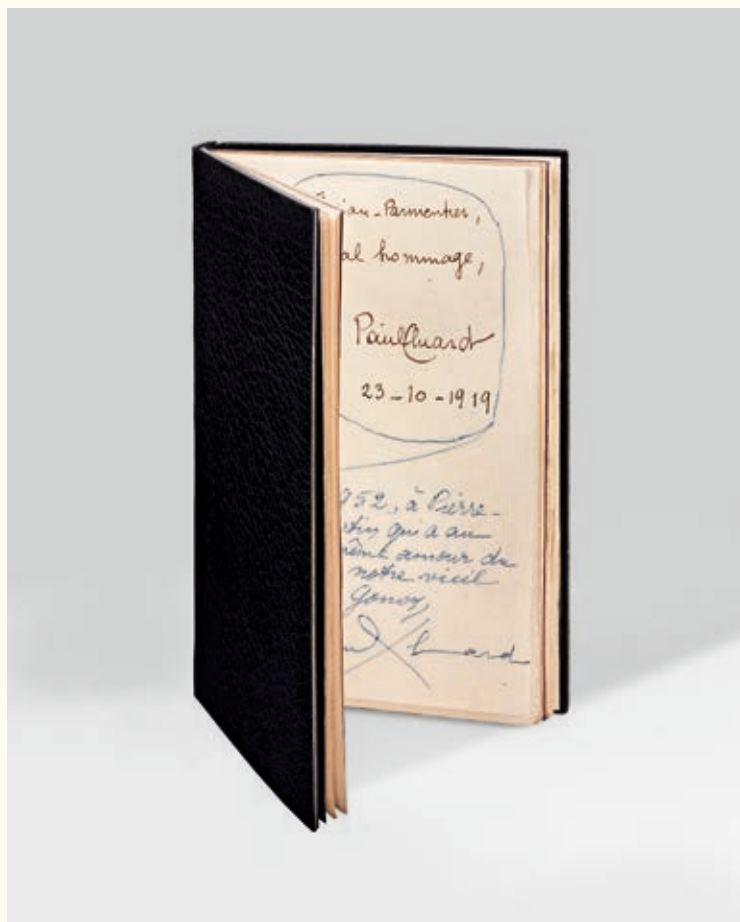 ian-Parmentier,
al hommage,
Paul Eluard
23-10-1919
952, à Pierre-
tin qui a au
même amour de
notre vieil
Gonon,
Eluard